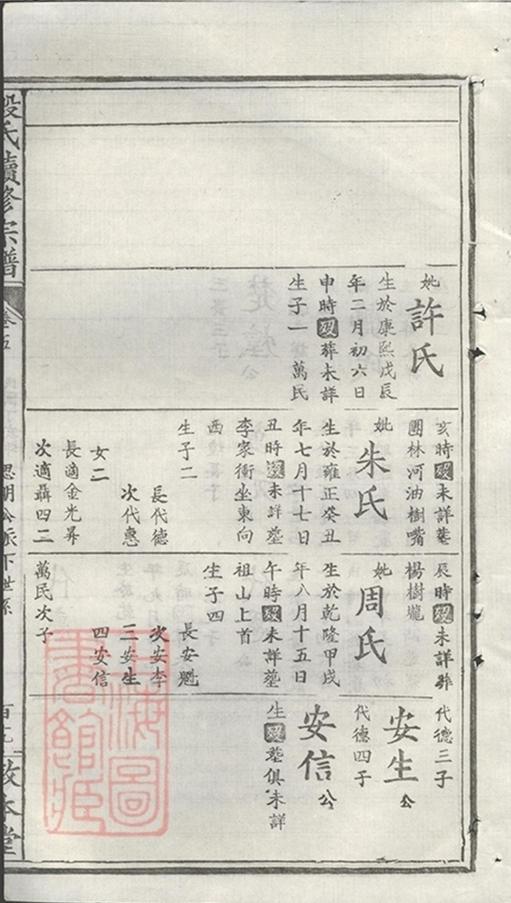 妣許氏
生於康熙戊辰
年二月初六日
申時歿葬未詳
生子一萬民
亥時歿未詳塟
團林河油樹嘴
妣朱氏
生於雍正癸丑
年七月十七日
丑時歿未詳塟
李家衝坐東向
西
生子二
長代德
次代惠
女二
長適金光昇
次適聶四二
辰時歿未詳葬
楊樹壠
妣周氏
生於乾隆甲戌
年八月十五日
午時歿未詳塟
祖山上首
生子四
長安魁
次安李
三安生
四安信
萬民次子
代德三子
安生公
代德四子
安信公
生歿塟俱未詳
段氏續修宗譜
卷五
思明公派下世系
敦本堂
上海圖書館藏